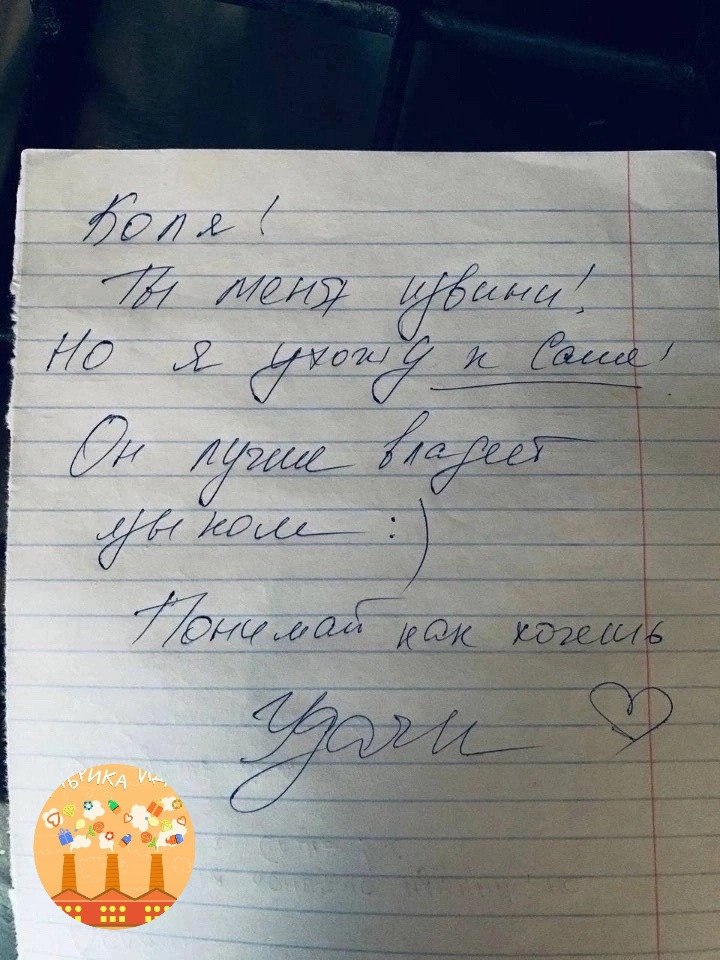 Коля!
Ты меня извини!
Но я ухожу к Саше!
Он лучше владеет
языком :)
Понимай как хочешь
Удачи